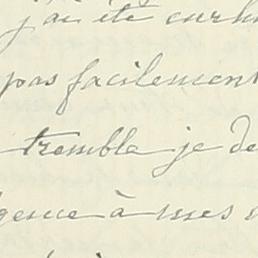 j'ai été
pas facilement
tremble je de
gence à mes